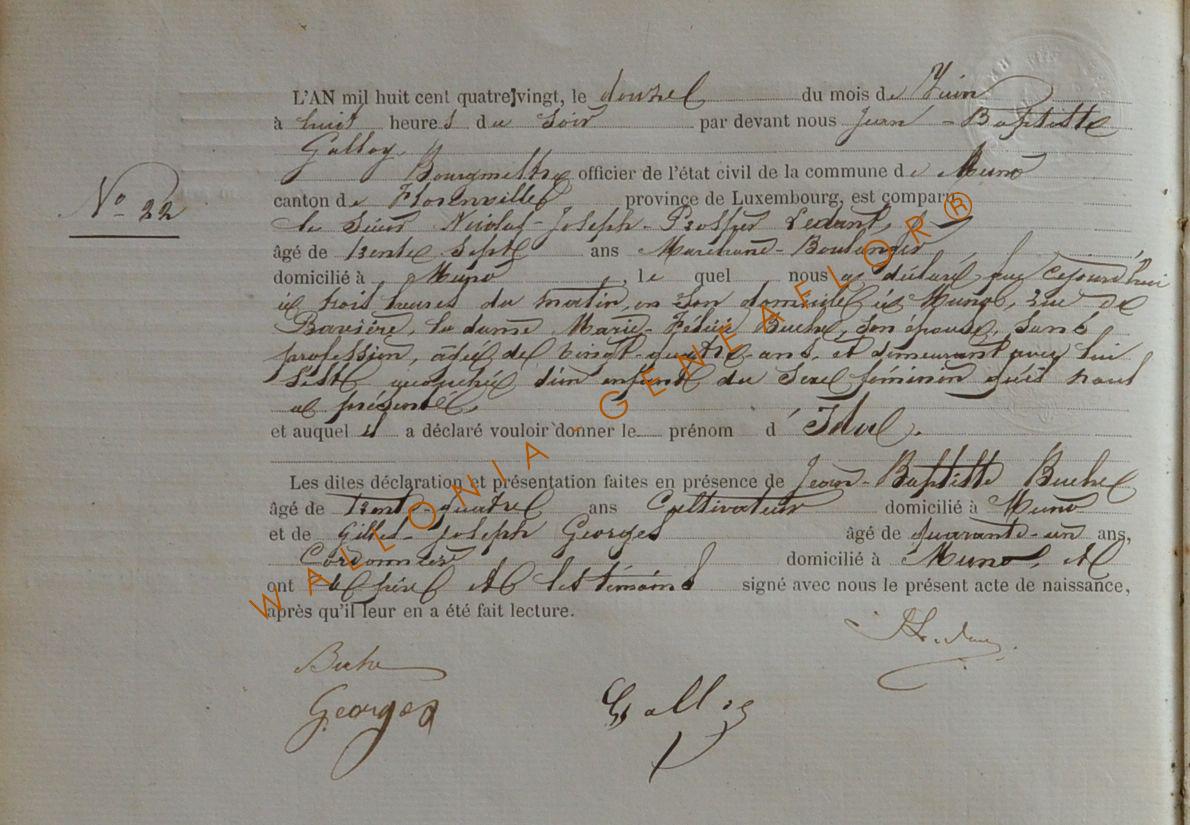 L'AN mil huit cent quatre vingt, le douze du mois de Juin
à huit heures du soir par devant nous Jean-Baptiste
Galloy
Nº 22
Bourgmestre officier de l'état civil de la commune de Muno
canton de Florenville province de Luxembourg, est comparu
le Sieur Nicolas-Joseph-Prosper Ledant,
âgé de trente sept ans Maréchand-Boulanger
domicilié à Muno, le quel nous a déclaré que cejourd'hui
à trois heures du matin, en son domicile à Muno, rue de
Bavière, la dame Marie-Félicie Buche, son épouse, sans
profession, âgée de vingt-quatre ans, et demeurant avec lui
s'est accouchée d'un enfant du sexe féminin qu'il nous
a présenté,
et auquel il a déclaré vouloir donner le prénom d'Ida.
Les dites déclaration et présentation faites en présence de Jean-Baptiste Buche
âgé de trente-quatre ans Cultivateur domicilié à Muno
et de Gilles-Joseph Georges âgé de quarante-un ans,
Cordonnier domicilié à Muno, et
ont le père et les témoins signé avec nous le présent acte de naissance,
après qu'il leur en a été fait lecture.
Buche
Georges Galloy
WALLONIA-GENEAFLOR®